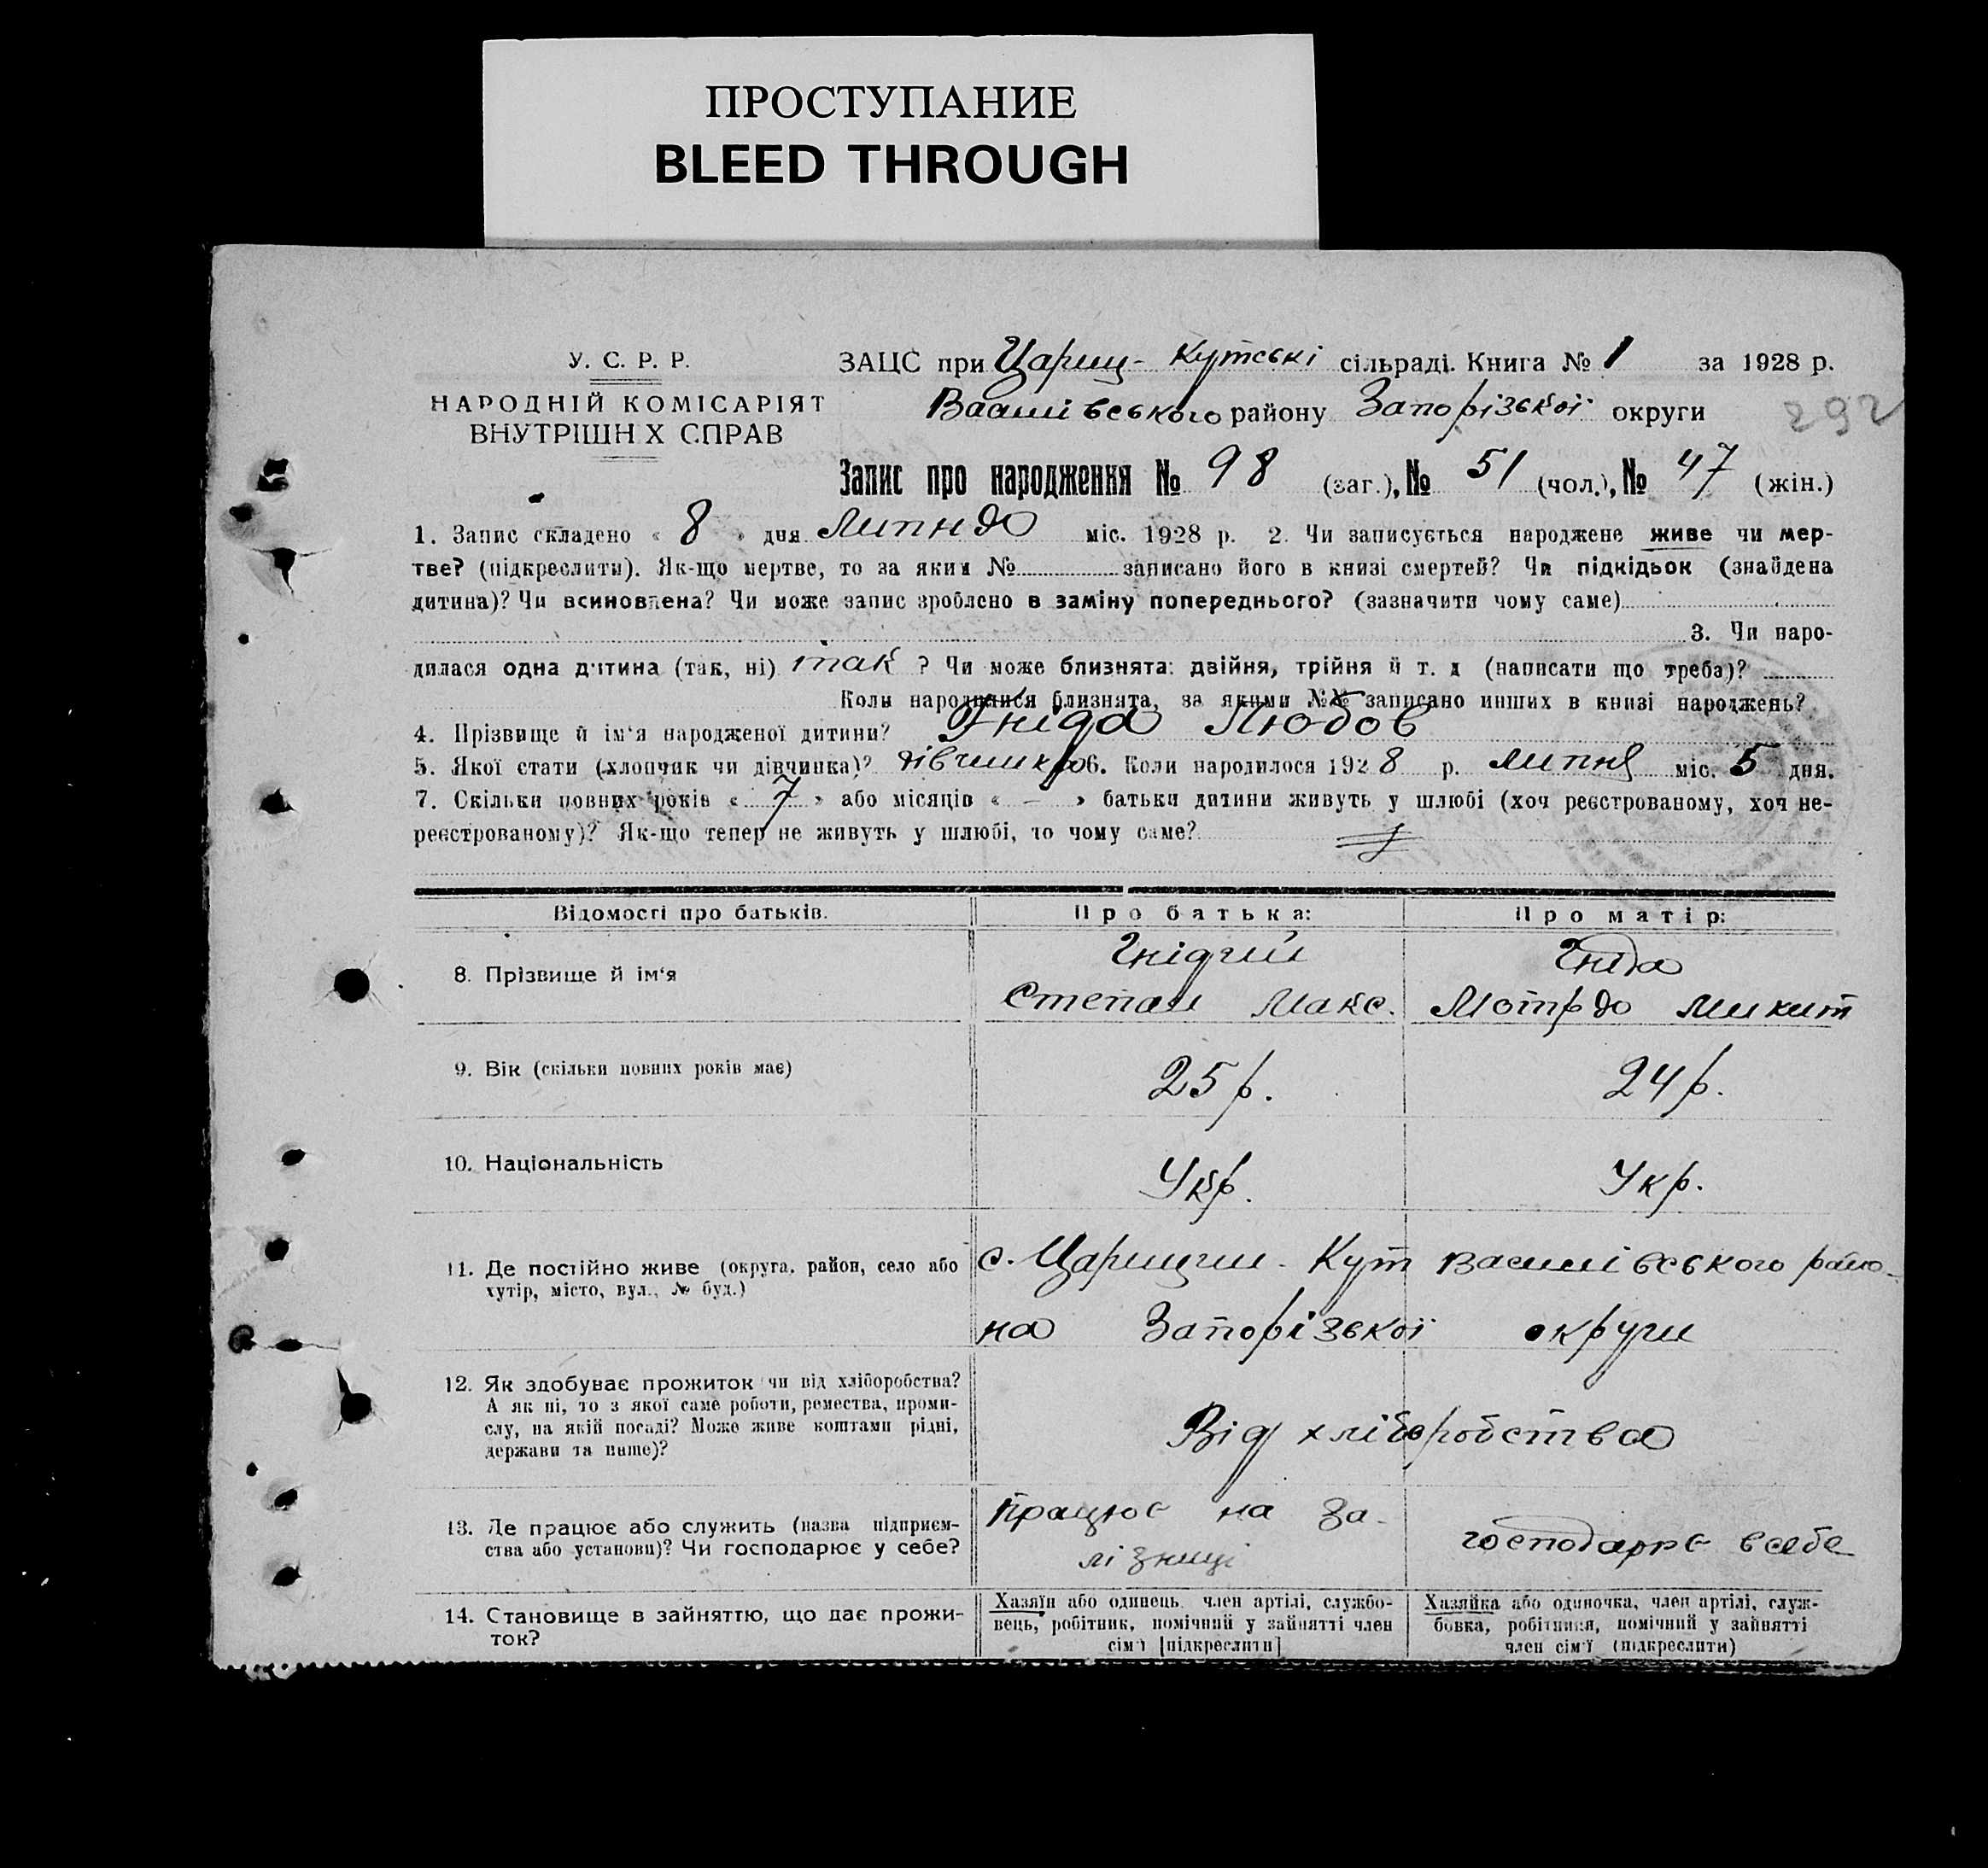 ПРОСТУПАНИЕ
BLEED THROUGH
У. С. Р. Р.
НАРОДНІЙ КОМІСАРІЯТ
ВНУТРІШН Х СПРАВ
ЗАЦС при Цариц-Кутські сільраді. Книга № 1 за 1928 р.
Василівського району Запорізької округи
292
Запис про народження № 98 (заг.), № 51 (чол.), № 47 (жін.)
1. Запис складено « 8 » дня міс. 1928 р. 2. Чи записується народжене живе чи мер-
тве? (підкреслити). Як-що мертве, то за яким № записано його в книзі смертей? Чи підкідьок (знайдена
дитина)? Чи всиновлена? Чи може запис зроблено в заміну попереднього? (зазначити чому саме)
3. Чи наро-
дилася одна дитина (так, ні) так ? Чи може близнята: двійня, трійня й т. д (написати що треба)?
Коли народилися близнята, за якими №№ записано инших в книзі народжень?
4. Прізвище й ім'я народженої дитини? Гніда Любов
5. Якої стати (хлопчик чи дівчинка)? дівчинка 6. Коли народилося 1928 р. липня міс. 5 дня.
7. Скільки повних років « 7 » або місяців « – » батьки дитини живуть у шлюбі (хоч реєстрованому, хоч не-
реєстрованому)? Як-що тепер не живуть у шлюбі, то чому саме?
Відомості про батьків. Про батька: Про матір:
8. Прізвище й ім'я
Гнідий Гніда
Степан Макс. Мотрдо Микит
9. Вік (скільки повних років має) 25 р. 24 р.
10. Національність Укр. Укр.
11. Де постійно живе (округа, район, село або
хутір, місто, вул., № буд.)
с. Царицин-Кут Василівського райо-
на Запорізької округи
12. Як здобуває прожиток чи від хліборобства?
А як ні, то з якої саме роботи, ремества, проми-
слу, на якій посаді? Може живе коштами рідні,
держави та инше)?
Від хліборобства
13. Де працює або служить (назва підприєм-
ства або установи)? Чи господарює у себе?
Працює на за-
лізниці
господарює в себе
14. Становище в зайняттю, що дає прожи-
ток?
Хазяїн або одинець, член артілі, службо-
вець, робітник, помічний у зайнятті член
сім'ї [підкреслити]
Хазяйка або одиночка, член артілі, служ-
бовка, робітниця, помічний у зайнятті
член сім'ї (підкреслити)